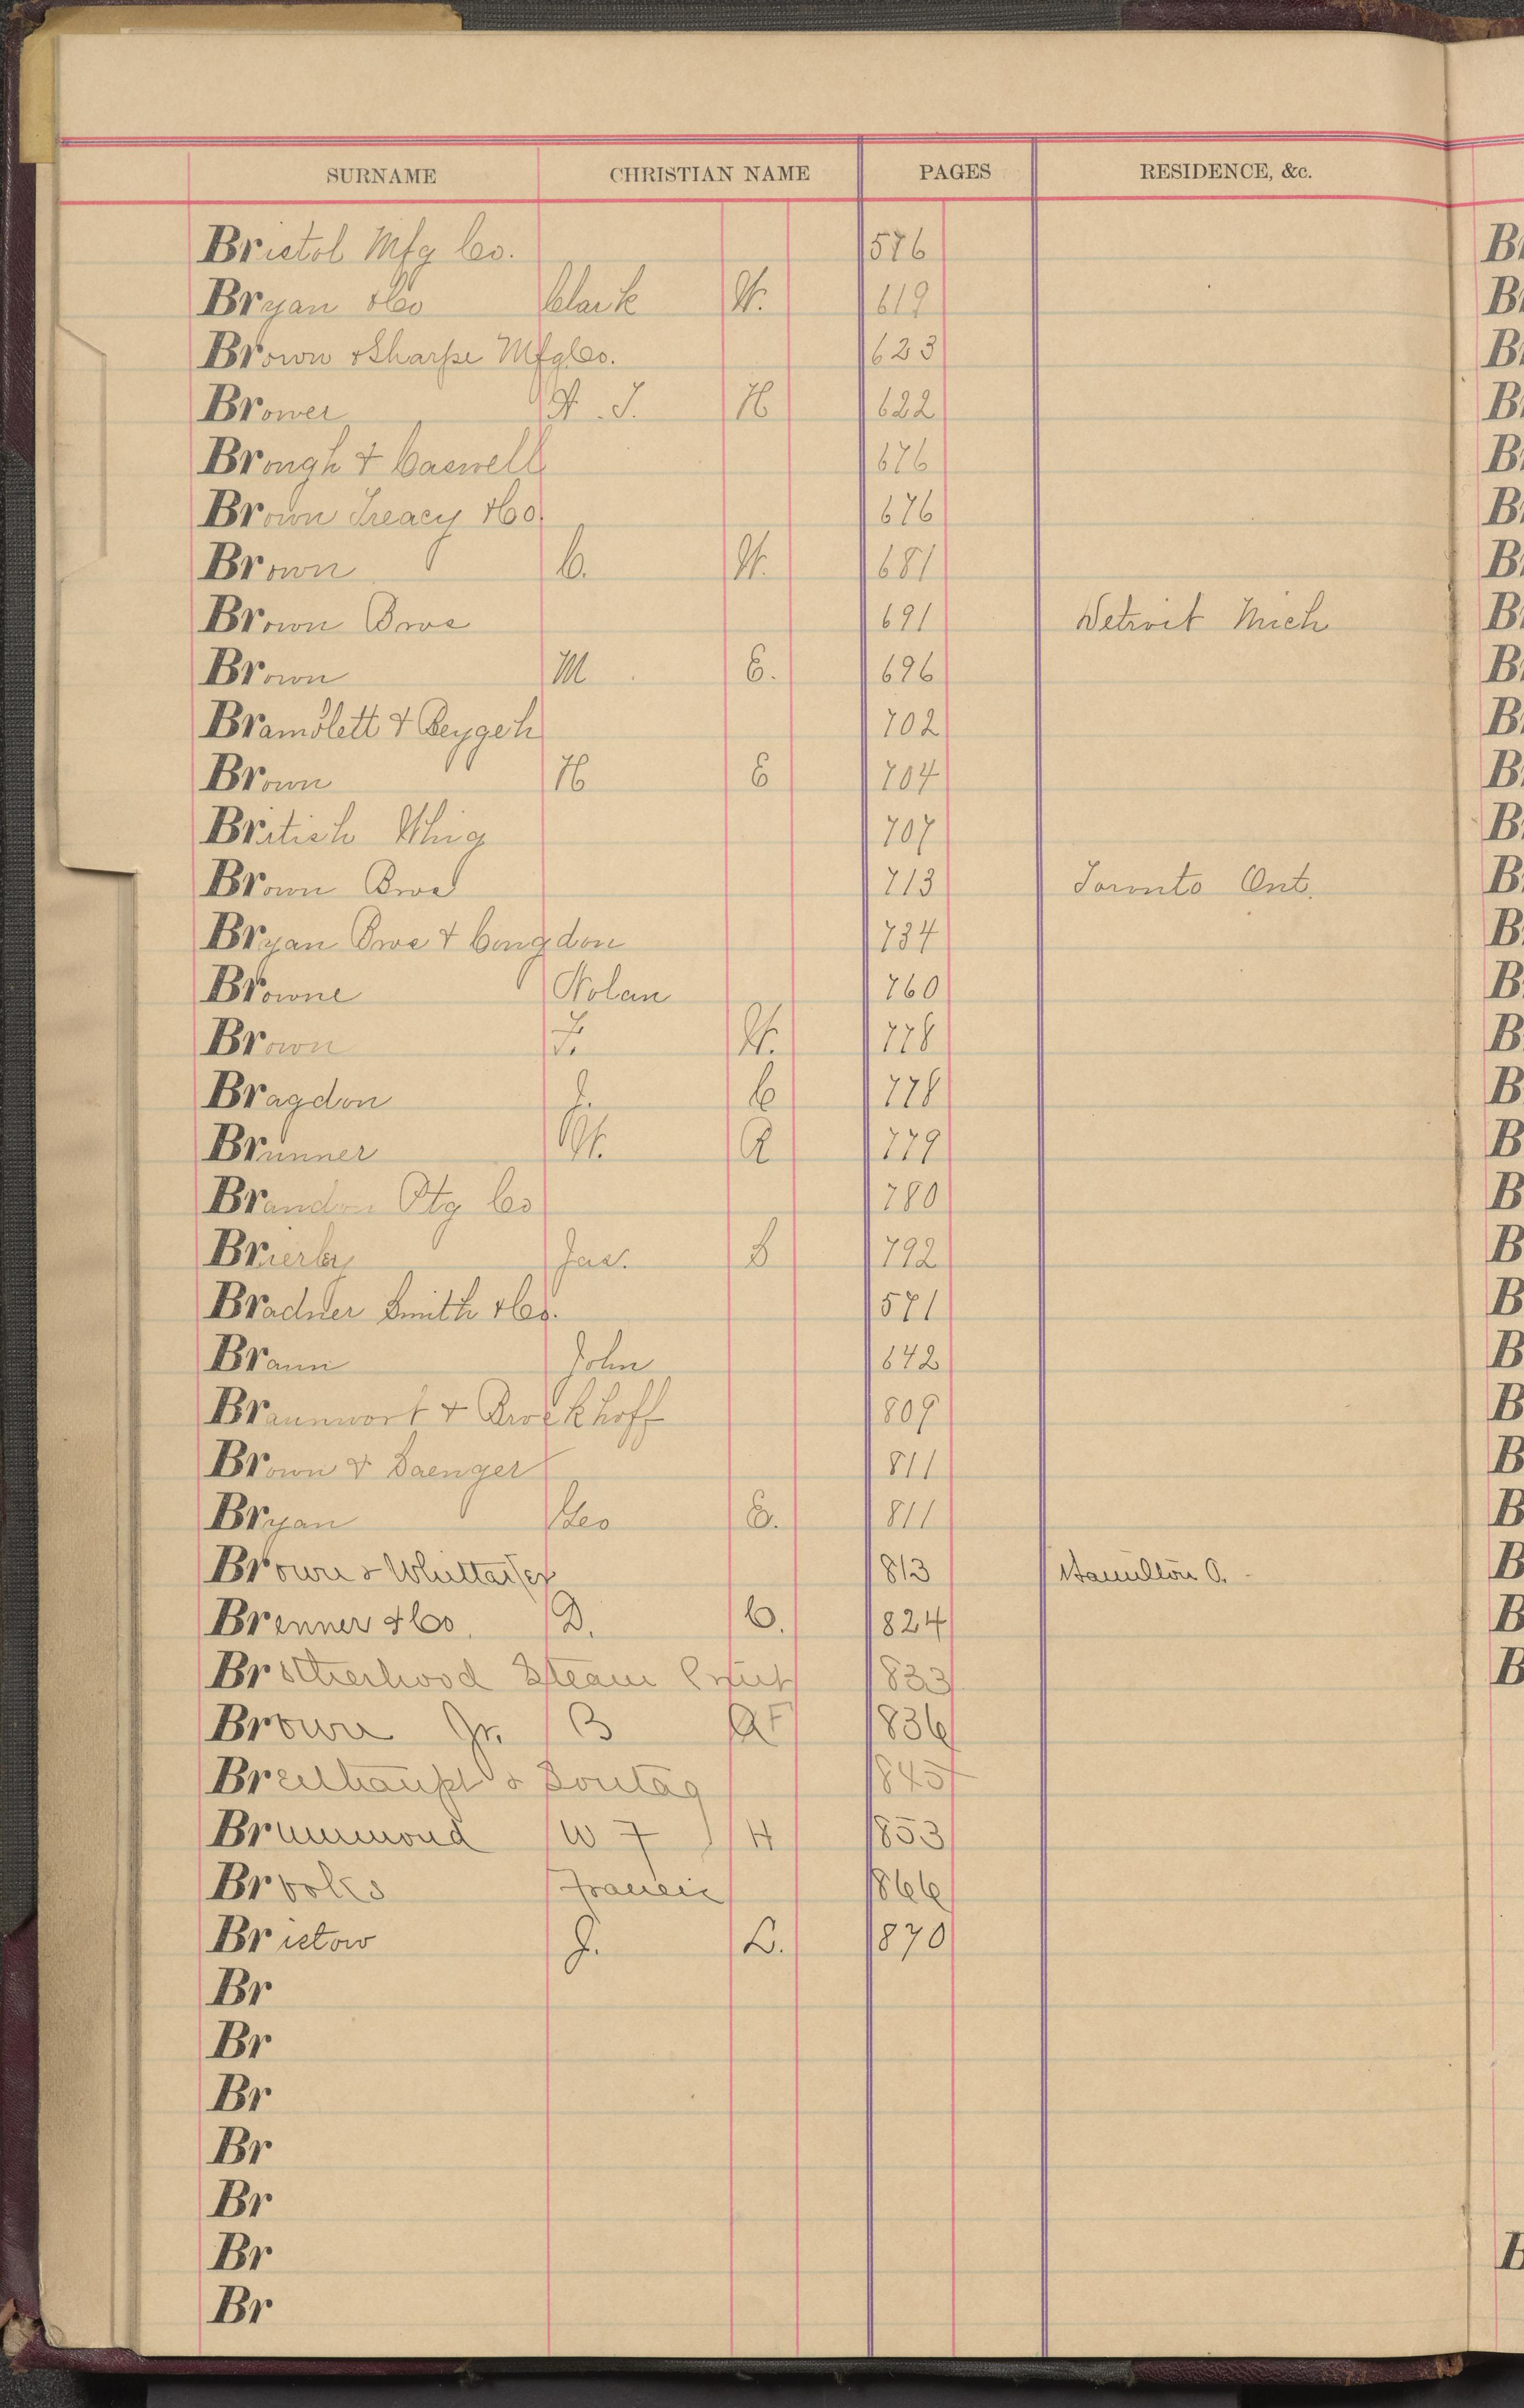 SURNAME CHRISTIAN NAME PAGES RESIDENCE, &c.
Bristol Mfg Co. 576
Bryan & Co Clark W. 619
Brown & Sharpe Mfg Co. 623
Brower H 622
Brough & Caswell 676
Brown Treacy & Co. 676
Brown C. W. 681
Brown Bros 691 Detroit Mich
Brown M E. 696
Bramblett & Beygeh 702
Brown H E 704
British Whig 707
Brown Bros 713 Toronto Ont.
Bryan Bros & Congdon 734
Browne Nolan 760
Brown F. W. 778
Bragdon J. C 778
Brunner W. A 779
Brandon Ptg Co 780
Brierley Jas. S 792
Bradner Smith & Co. 571
Braun John 642
Braunwort & Brockhoff 809
Brown & Saenger 811
Bryan Geo E. 811
Brown & Whittaker 813 Hamilton O.
Brenner & Co. D. C. 824
Brotherhood Steam Print 833
Brown Jr. B AF 836
Breithaupt & Sontag 845
Brummond W F H 853
Brooks Francis 866
Bristow J. L. 870
Br
Br
Br
Br
Br
Br
Br